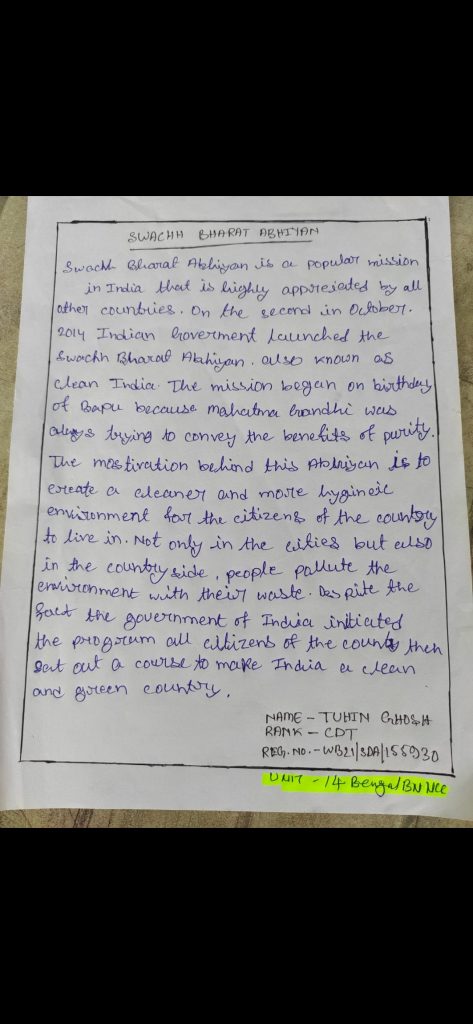 SWACHH BHARAT ABHIYAN
Swachh Bharat Abhiyan is a popular mission
in India that is highly appresiated by all
other countries. On the second in October.
2014 Indian Goverment launched the
Swachh Bharat Abhiyan. also known as
clean India. The mission began on birthday
of Bapu because Mahatma Gandhi was
always trying to convey the benefits of purity.
The mostivation behind this Abhiyan is to
create a cleaner and more hygineic
environment for the citizens of the country
to live in. Not only in the cities but also
in the country side, people pallute the
environment with their waste. Des pite the
fact the government of India initiated
the program all citizens of the county then
set out a course to make India a clean
and green country.
NAME - TUHIN GHOSH
RANK - CDT
REG. NO. - WB21/SDA/155930
UNIT - 14 Bengal BN NCC